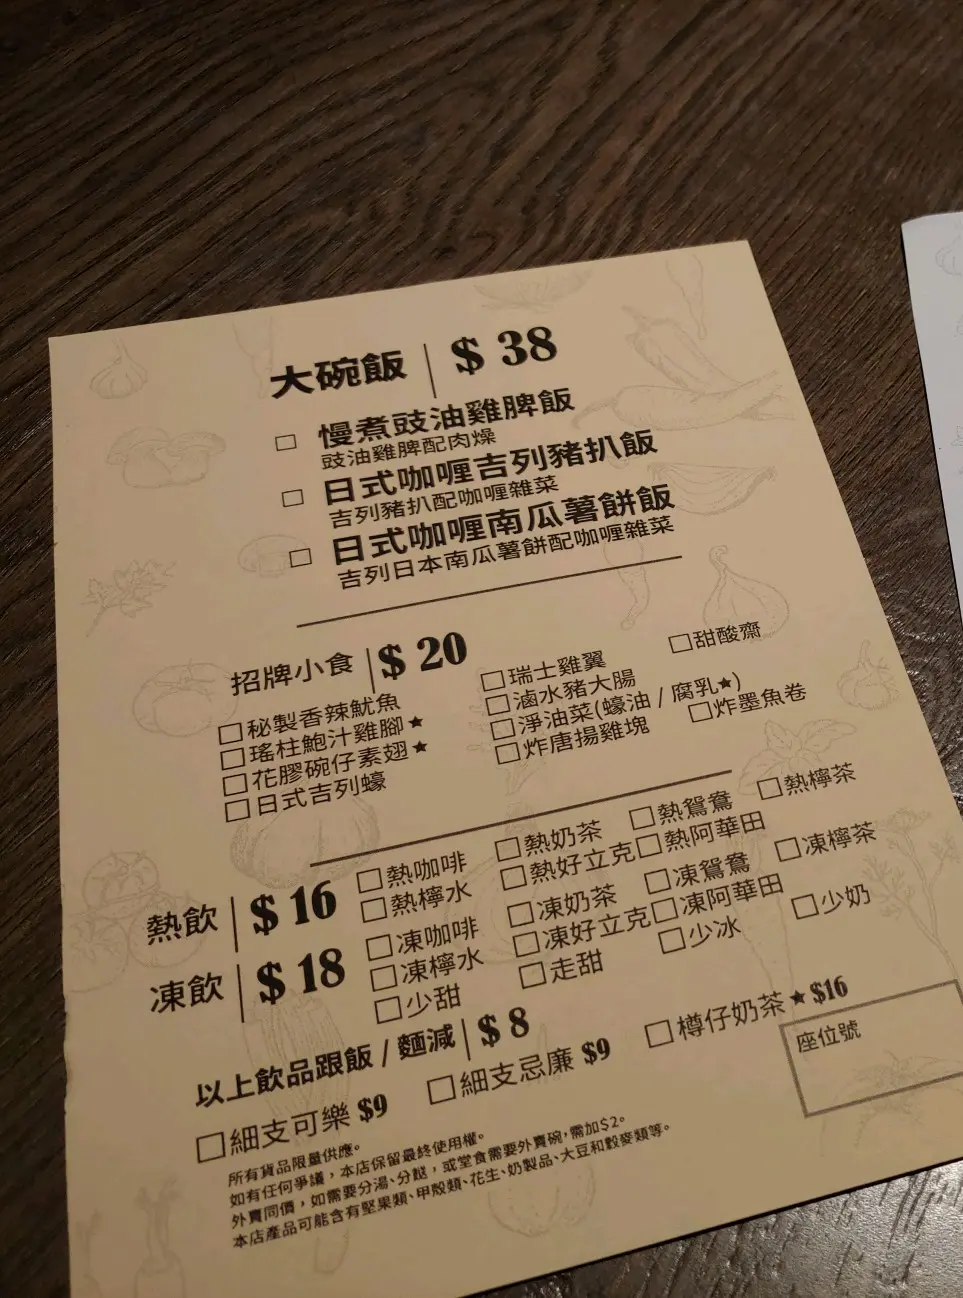 大碗飯 | $ 38
□ 慢煮豉油雞脾飯
豉油雞脾配肉燥
□ 日式咖喱吉列豬扒飯
吉列豬扒配咖喱雜菜
□ 日式咖喱南瓜薯餅飯
吉列日本南瓜薯餅配咖喱雜菜
招牌小食 | $ 20
□秘製香辣魷魚 □瑞士雞翼 □甜酸齋
□瑤柱鮑汁雞腳★ □滷水豬大腸
□花膠碗仔素翅★ □淨油菜(蠔油 / 腐乳★)
□日式吉列蠔 □炸唐揚雞塊 □炸墨魚卷
熱飲 | $ 16
□熱咖啡 □熱奶茶 □熱鴛鴦 □熱檸茶
□熱檸水 □熱好立克 □熱阿華田
凍飲 | $ 18
□凍咖啡 □凍奶茶 □凍鴛鴦 □凍檸茶
□凍檸水 □凍好立克 □凍阿華田
□少甜 □走甜 □少冰 □少奶
以上飲品跟飯 / 麵減 | $ 8
□細支可樂 $9 □細支忌廉 $9 □樽仔奶茶★$16
座位號
所有貨品限量供應。
如有任何爭議，本店保留最終使用權。
外賣同價，如需要分湯、分餸，或堂食需要外賣碗，需加$2。
本店產品可能含有堅果類、甲殼類、花生、奶製品、大豆和穀麥類等。